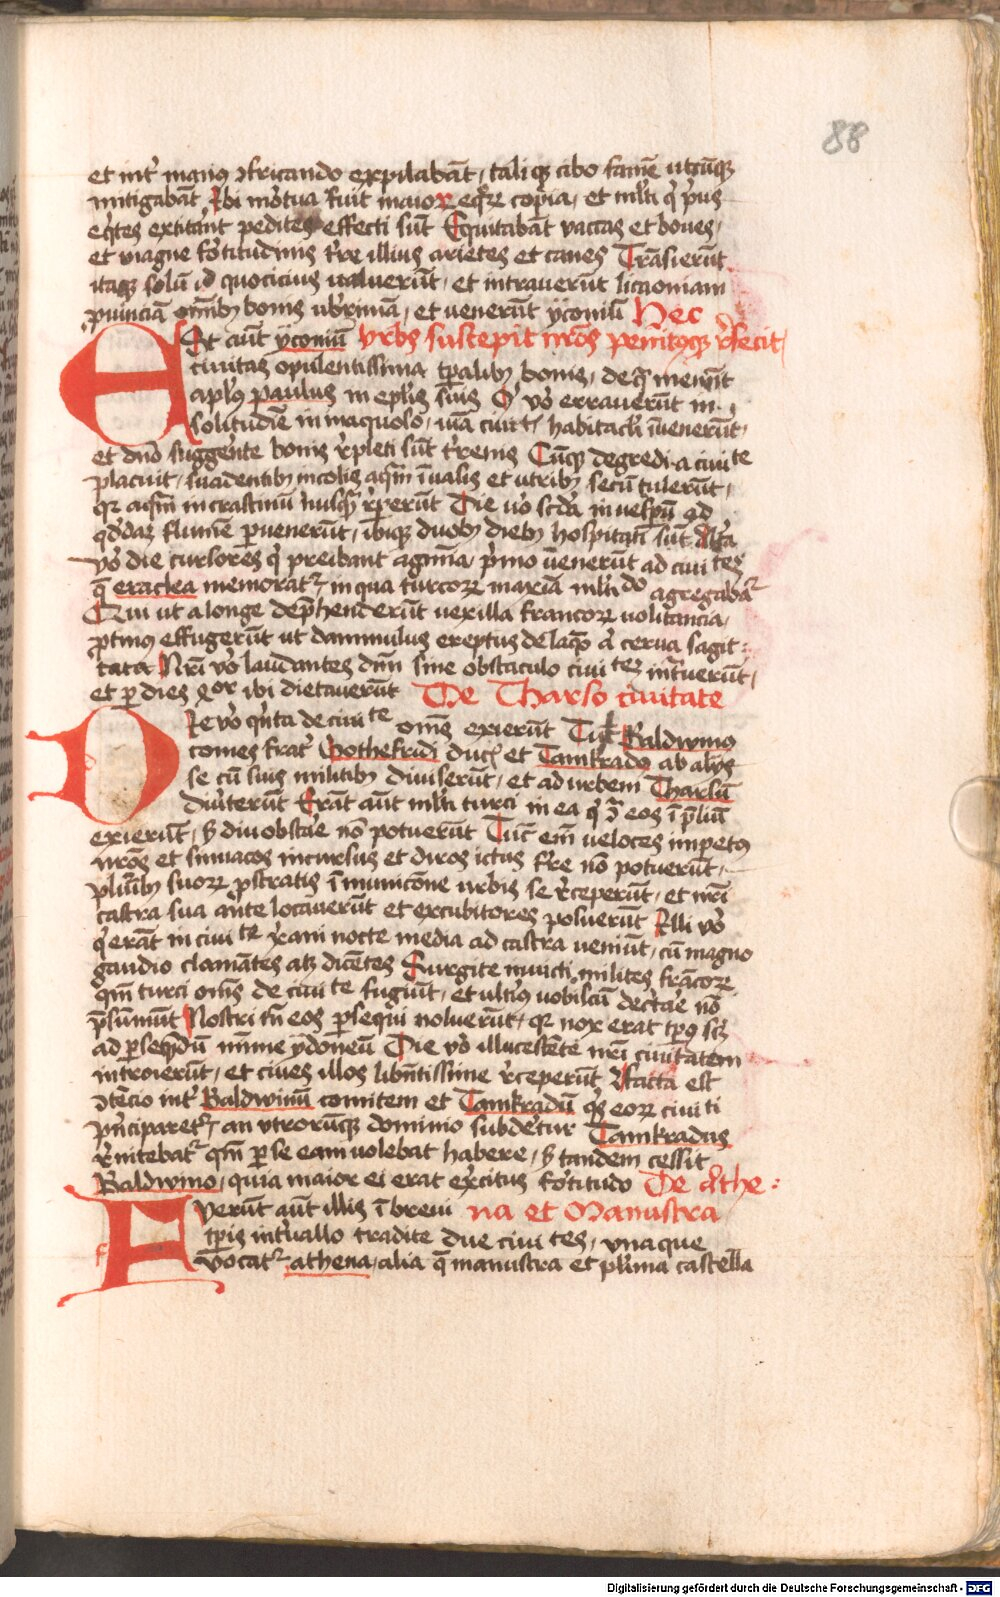 88
et int̉ manꝰ ɔfricando expilabāt, tali qꝫ cibo famē utcūqꝫ
mitigabāt Ibi mo̓tua fuit maioꝝ eq̓ꝝ copia, et ml̓ti q̓ p̓us
eq̓tes extitāt pedites effecti sūt Equitabāt vaccas et boues,
et magne fo̓titudinis tr̄e illius arietes et canes Trāsierūt
itaqꝫ solū id quocicius ualuerūt, et intrauerūt licaoniam
ꝓuinciā om̄ibꝫ bonis ub̓rimā, et uenerūt yconiū Hec
Et aūt yconiū vrbs suscepit nr̄os penitqꝫ r̓fecit
ciuitas opulentissima tꝑalibꝫ bonis, de q̄ meminit
apl̓us paulus in epl̓is suis Q̓ vo̓ errauerūt in
solitudīe in inaquoso, iuxta habitacl̓i īuenerūt,
et dn̄o suggerēte bonis r̓pleti sūt t̓renis Cūqꝫ degredi a ciuite
placuit, suadentibꝫ incolis aqͣm ī ualis et utribꝫ secū tulerūt,
qꝛ aqͣm in crastinū nusqͣ r̓ꝑerūt Die vo̓ sc̄da in uesꝑū ad
qd̓daꝫ flumē ꝑuenerūt, ibiqꝫ duobꝫ diebꝫ hospitati sūt Alt̓a
vo̓ die cursores q̓ preibant agmīa, p̓mo uenerūt ad ciuites
q̄ eraclea memorat᷑ in qua turcoꝝ maxīa ml̓tido agregabat᷑
Qui ut a longe dep̓henderūt uexilla francoꝝ uolitancia,
ꝓtinꝰ effugerūt ut dammulus ereptus de laqͦ ul̓ cerua sagit:
tata Nr̄i vo̓ laudantes dn̄m sine obstaculo ciuites int̓uerūt,
et ꝑ dies qͣor ibi dietauerūt De Tharso ciuitate
Die vo̓ qͥnta de ciuite om̄es exierūt Tūc Baldwinꝰ
comes frat̉ Gothefridi ducꝭ et Tamkradꝰ ab alijs
se cū suis militibꝫ diuiserūt, et ad urbem Tharsū
diu̓terūt Erāt aūt ml̓ti turci in ea q̓ ɔͣ eos ī p̄liū
exierūt, sꝫ diu obstare nō potuerūt Tūc em̄ ueloces impetꝰ
nr̄os et minaces incursus et diros ictus ferre nō potuerūt,
pl̓ribꝫ suoꝝ ꝓstratis ī municōne urbis se r̓ceperūt, et nr̄i
castra sua ante locauerūt et excubitores posuerūt Illi vo̓
q̓ erāt in ciuite xp̄ani nocte media ad castra ueniūt, cū magno
gaudio clamātes atqꝫ dicētes Surgite inuicti milites frācoꝝ
qm̄ turci om̄s de ciuite fugiūt, et ultiꝰ uobiscū dec̓tare nō
p̄sumūt Nostri tn̄ eos ꝑsequi noluerūt, qꝛ nox erat tp̄s scꝫ
ad ꝑseq̓ndū minime ydoneū Die vo̓ illucescēte nr̄i ciuitatem
introierūt, et ciues illos libn̄tissime r̓ceperūt Facta est
ɔtēcio int̉ Baldwinū comitem et Tamkradū qͥs eoꝝ ciuiti
pͥnciparet᷑ an vtrorūqꝫ dominio subderetur Tamkradus
r̓nitebat᷑ qm̄ ꝑ se eam uolebat habere, sꝫ tandem cessit
Baldwino, quia maior ei erat exercitus fo̓titudo De Athe:
Fuerūt aūt illis ī breui na et Manustra
tꝑis int̓uallo tradite due ciuites, vna que
vocat᷑ athena, alia q̄ manustra et pl̓ima castella
Digitalisierung gefördert durch die Deutsche Forschungsgemeinschaft - DFG